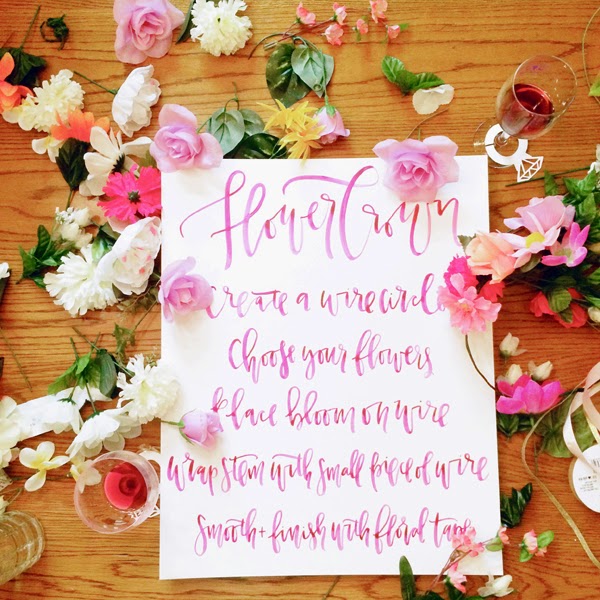 Flower Crown
Create a wire circle
Choose your flowers
Place bloom on wire
Wrap stem with small piece of wire
Smooth + finish with floral tape